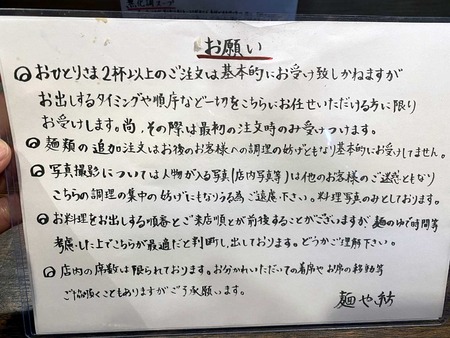 お願い
おひとりさま2杯以上のご注文は基本的にお受け致しかねますが
お出しするタイミングや順序など一切をこちらにお任せいただける方に限り
お受けします。尚、その際は最初の注文時のみ受けつけます。
麺類の追加注文はお後のお客様への調理の妨げともなり基本的にお受けしてません。
写真撮影については人物が入る写真(店内写真等)は他のお客様のご迷惑ともなり
こちらの調理の集中の妨げにもなりうる為ご遠慮下さい。料理写真のみとしております。
お料理をお出しする順番とご来店順とが前後することがございますが麺のゆで時間等
考慮した上でこちらが最適だと判断し出しております。どうかご理解下さい。
店内の席数は限られております。お分かれいただいての着席やお席の移動等
ご協力頂くこともありますがご了承願います。
麺や紡